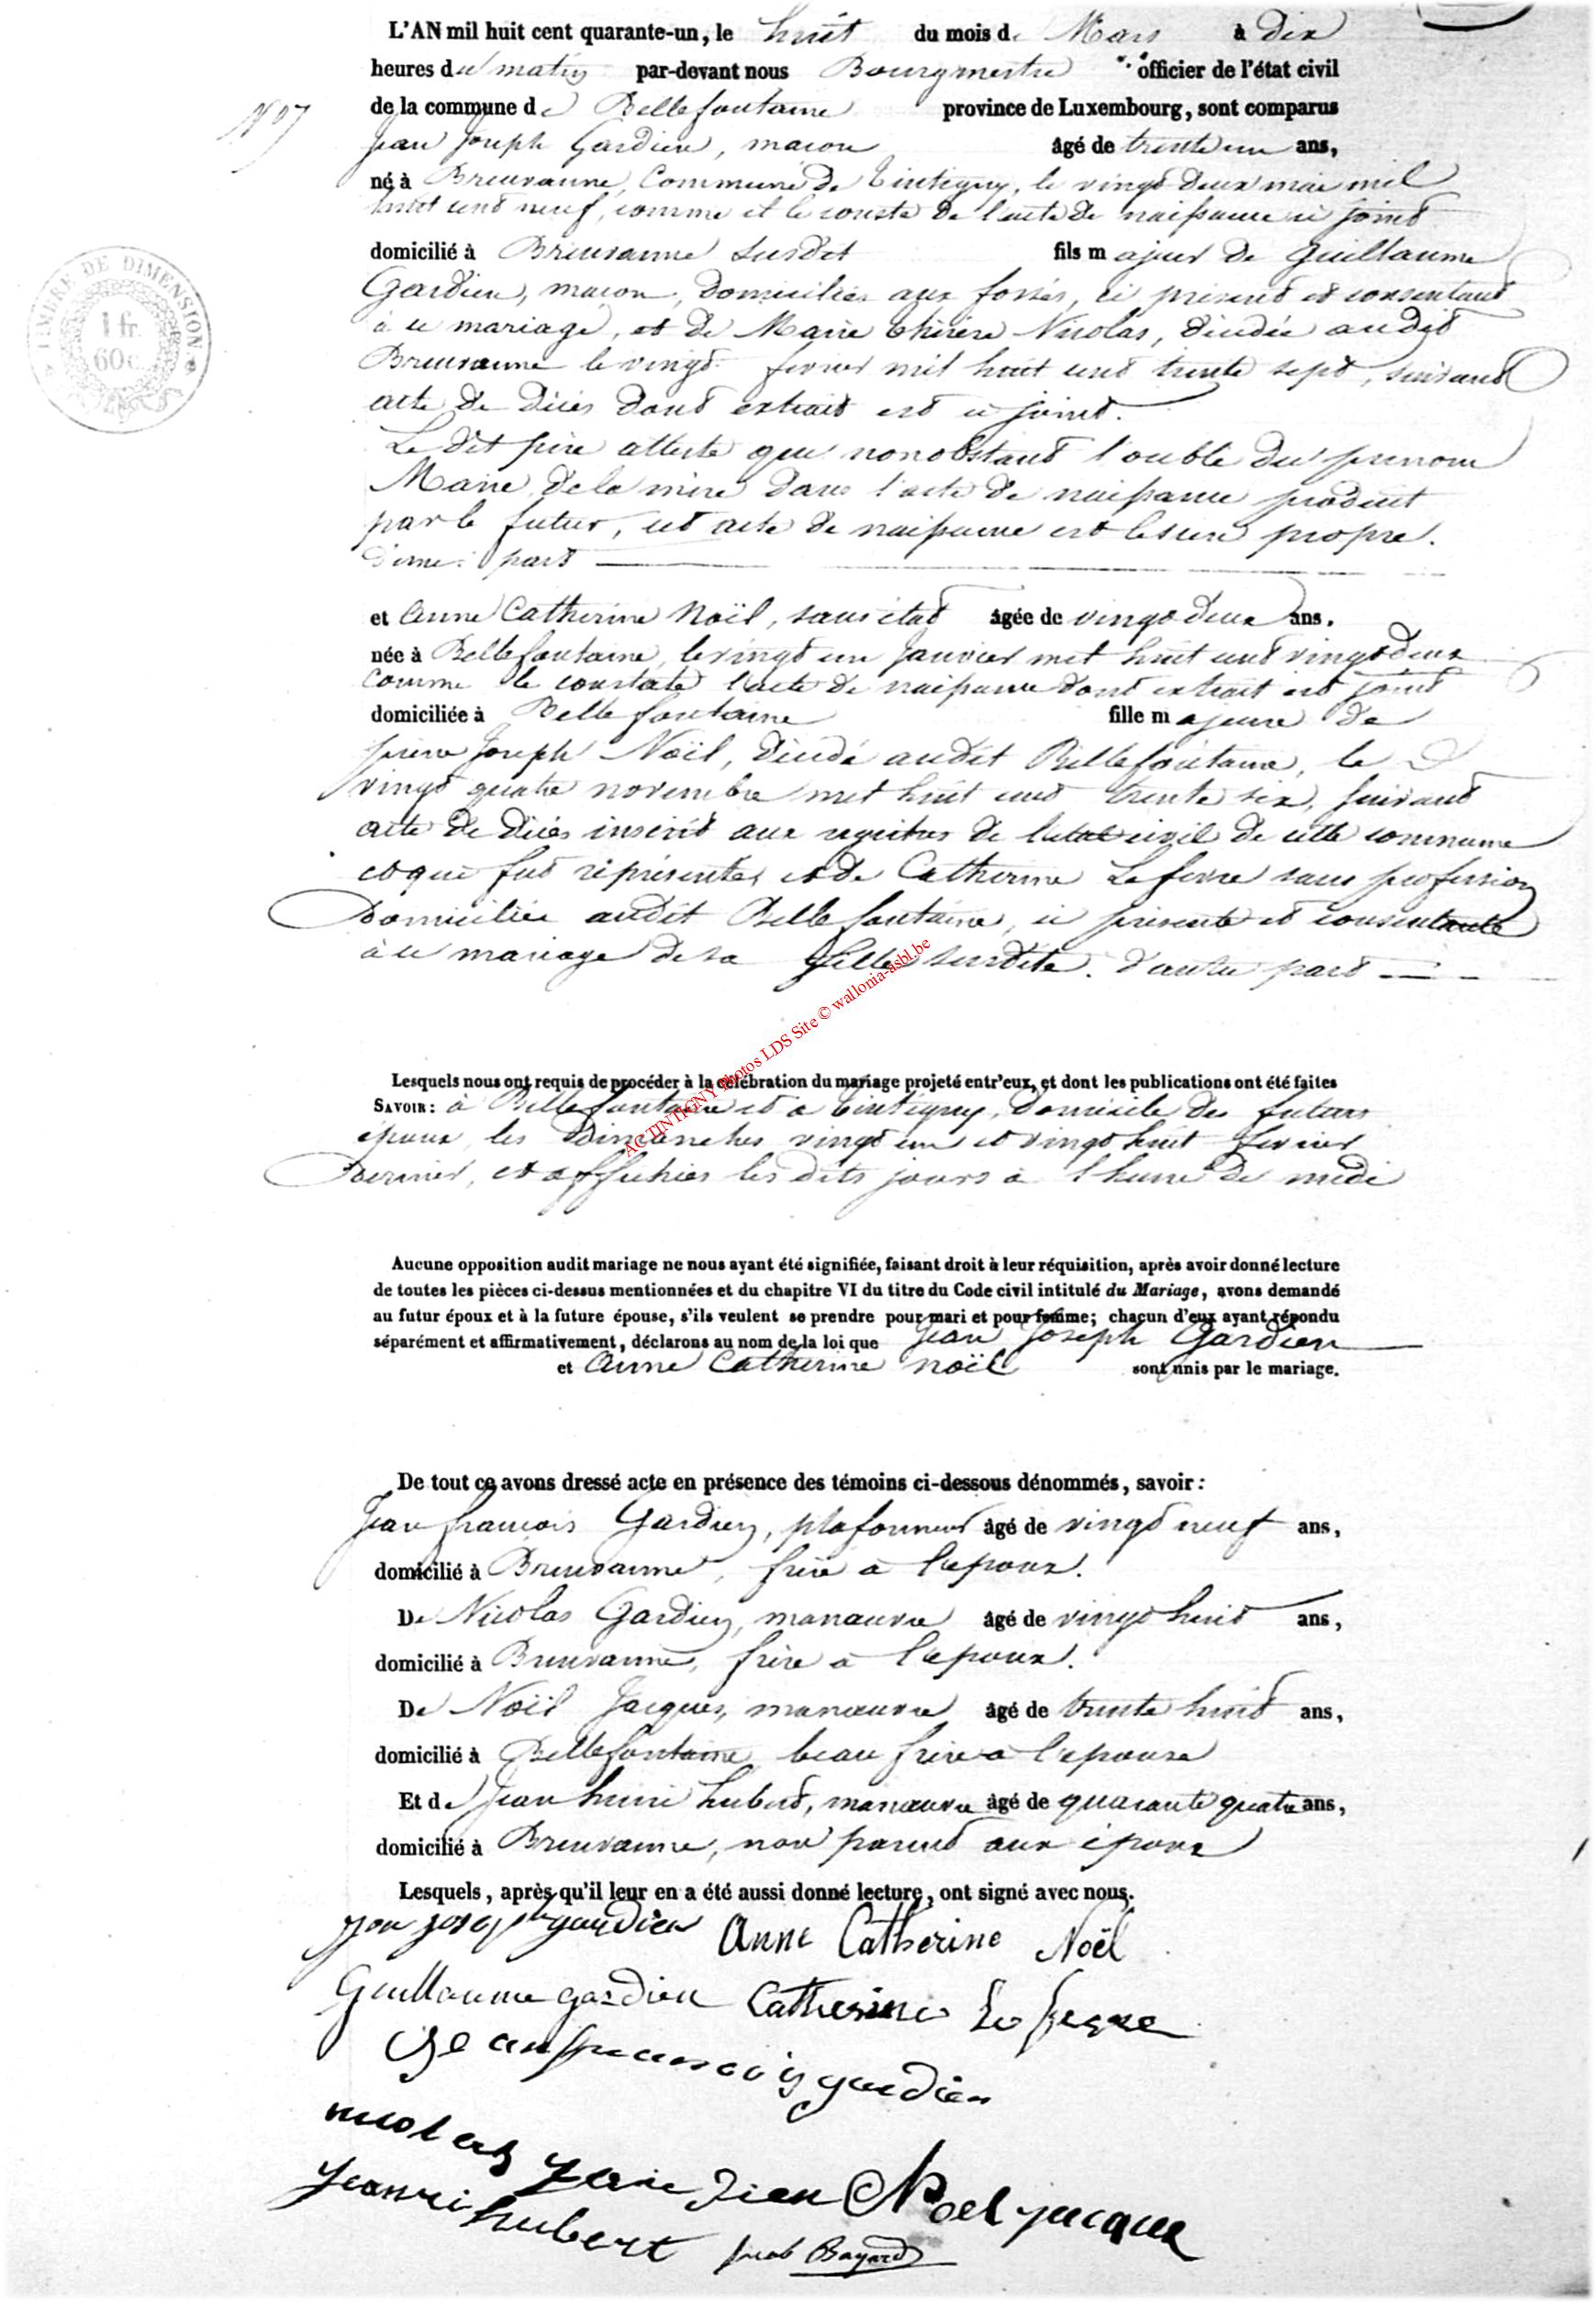 L'AN mil huit cent quarante-un, le huit du mois de Mars à dix
heures du matin par-devant nous Bourgmestre officier de l'état civil
de la commune de Bellefontaine province de Luxembourg, sont comparus
N° 7
Jean Joseph Gardien, macon âgé de trente un ans,
né à Breuvanne, Commune de Tintigny, le vingt deux mai mil
huit cent neuf, comme et le conste de l'acte de naissance ci joint
domicilié à Breuvanne susdit fils majeur de Guillaume
Gardien, macon, domicilié aux fossés, ci présent et consentant
à ce mariage, et de Marie thérèse Nicolas, décédée audit
Breuvanne le vingt fevrier mil huit cent trente sept, suivant
acte de décès dont extrait est ci joint.
Le dit père atteste que nonobstant l'oubli du prenom
Marie de la mère dans l'acte de naissance produit
par le futur, cet acte de naissance est le sien propre.
d'une part
et Anne Catherine Noël, sans état âgée de vingt deux ans.
née à Bellefontaine, le vingt un Janvier mil huit cent vingt deux
comme le constate l'acte de naissance dont extrait est joint
domiciliée à Bellefontaine fille majeure de
pierre Joseph Noël, décédé audit Bellefontaine, le
vingt quatre novembre mil huit cent trente six, suivant
acte de décès inscrit aux registres de l'état civil de cette commune
et qui fut représenté, et de Catherine Lefevre sans profession
Domiciliée audit Bellefontaine, ci présente et consentante
à ce mariage de sa fille susdite. d'autre part
Lesquels nous ont requis de procéder à la célébration du mariage projeté entr'eux, et dont les publications ont été faites
SAVOIR: à Bellefontaine et a Tintigny, domicile des futurs
époux, les Dimanches vingt un et vingt huit fevrier
Dernier, et affichées les dits jours à l'heure de midi
Aucune opposition audit mariage ne nous ayant été signifiée, faisant droit à leur réquisition, après avoir donné lecture
de toutes les pièces ci-dessus mentionnées et du chapitre VI du titre du Code civil intitulé du Mariage, avons demandé
au futur époux et à la future épouse, s'ils veulent se prendre pour mari et pour femme; chacun d'eux ayant répondu
séparément et affirmativement, déclarons au nom de la loi que Jean Joseph Gardien
et Anne Catherine Noël sont unis par le mariage.
De tout ce avons dressé acte en présence des témoins ci-dessous dénommés, savoir:
Jean françois Gardien, plafonneur âgé de vingt neuf ans,
domicilié à Breuvanne, frère à l'epoux.
De Nicolas Gardien, manœuvre âgé de vingt huit ans,
domicilié à Breuvanne, frère à l'epoux.
De Noël Jacques, manœuvre âgé de trente huit ans,
domicilié à Bellefontaine beau frère à l'epouse
Et de Jean henri hubert, manœuvre âgé de quarante quatre ans,
domicilié à Breuvanne, non parent aux époux
Lesquels, après qu'il leur en a été aussi donné lecture, ont signé avec nous.
jean joseph gardien Anne Catherine Noël
Guillaume gardien Catherine Lefevre
Jean francois gardien
nicolas gardien Noel jacque
jeanri hubert Bayard
TIMBRE DE DIMENSION
1 fr.
60 c.
AC TINTIGNY Photos LDS Site © wallonia-asbl.be